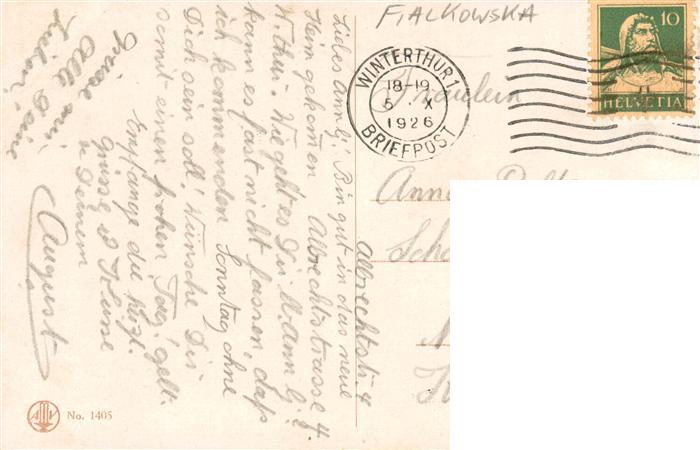 FIALKOWSKA
10
HELVETIA
WINTERTHUR 1
18-19
5 X
1926
BRIEFPOST
Fräulein
Anna
Albrechtstr. 4
Liebes Annlj! Bin gut in das neue
Heim gekommen Albrechtstrasse 4.
W'thur. Wie geht es Dir lb. Annlj.
kann es fast nicht fassen, dass
ich kommenden Sonntag ohne
Dich sein soll! Wünsche Dir
somit einen frohen Tag, gelt.
Empfange die herzl.
Grüsse & Küsse
v. Deinem
August
Grüsse mir
Alle Deine
Lieben.
No. 1405